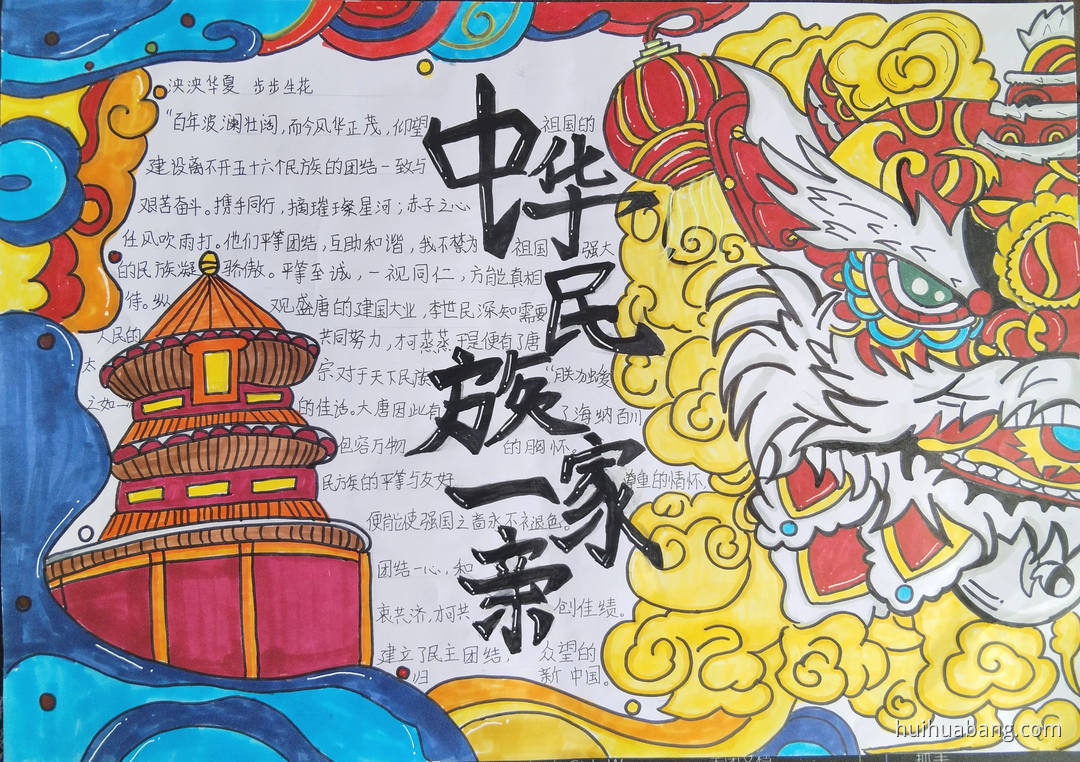 泱泱华夏 步步生花
中华民族一家亲
"百年波澜壮阔,而今风华正茂,仰望祖国的
建设离不开五十六个民族的团结一致与
艰苦奋斗。携手同行,摘璀璨星河;赤子之心
任风吹雨打。他们平等团结,互助和谐,我不禁为祖国强大
的民族凝 骄傲。平等至诚,一视同仁,方能真相
待。纵 观盛唐的建国大业,李世民深知需要
人民的 共同努力,才可蒸蒸 于是便有了唐
太 宗对于天下民族
之如一 的佳话。大唐因此有了海纳百川
包容万物 的胸怀。
民族的平等与友好 尊重的情怀,
便能使强国之音永不褪色。
团结一心,和
衷共济,才可共创佳绩。
建立了民主团结, 众望的
归 新中国。
huihuabang.com